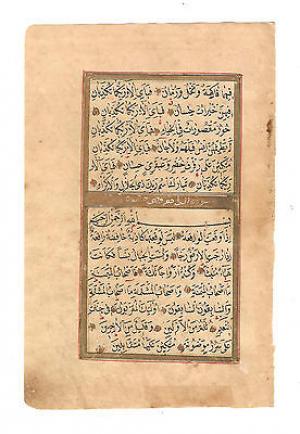 فِيهِمَا فَاكِهَةٌ وَنَخْلٌ وَرُمَّانٌ فَبِأَيِّ اٰلَاءِ رَبِّكُمَا تُكَذِّبَانِ
فِيهِنَّ خَيْرَاتٌ حِسَانٌ فَبِأَيِّ اٰلَاءِ رَبِّكُمَا تُكَذِّبَانِ
حُورٌ مَقْصُورَاتٌ فِي الْخِيَامِ فَبِأَيِّ اٰلَاءِ رَبِّكُمَا تُكَذِّبَانِ
لَمْ يَطْمِثْهُنَّ اِنْسٌ قَبْلَهُمْ وَلَا جَانٌّ فَبِأَيِّ اٰلَاءِ رَبِّكُمَا تُكَذِّبَانِ
مُتَّكِئِينَ عَلَى رَفْرَفٍ خُضْرٍ وَعَبْقَرِيٍّ حِسَانٍ فَبِأَيِّ اٰلَاءِ
رَبِّكُمَا تُكَذِّبَانِ تَبَارَكَ اسْمُ رَبِّكَ ذِي الْجَلَالِ وَالْاِكْرَامِ
سورة الواقعة
بِسْمِ اللّٰهِ الرَّحْمٰنِ الرَّحِيمِ
اِذَا وَقَعَتِ الْوَاقِعَةُ لَيْسَ لِوَقْعَتِهَا كَاذِبَةٌ خَافِضَةٌ رَافِعَةٌ
اِذَا رُجَّتِ الْاَرْضُ رَجًّا وَبُسَّتِ الْجِبَالُ بَسًّا فَكَانَتْ
هَبَاءً مُنْبَثًّا وَكُنْتُمْ اَزْوَاجًا ثَلٰثَةً فَاَصْحَابُ الْمَيْمَنَةِ
مَا اَصْحَابُ الْمَيْمَنَةِ وَاَصْحَابُ الْمَشْئَمَةِ مَا اَصْحَابُ الْمَشْئَمَةِ
وَالسَّابِقُونَ السَّابِقُونَ اُولٰئِكَ الْمُقَرَّبُونَ فِي جَنَّاتِ
النَّعِيمِ ثُلَّةٌ مِنَ الْاَوَّلِينَ وَقَلِيلٌ مِنَ الْاٰخِرِينَ
عَلَى سُرُرٍ مَوْضُونَةٍ مُتَّكِئِينَ عَلَيْهَا مُتَقَابِلِينَ